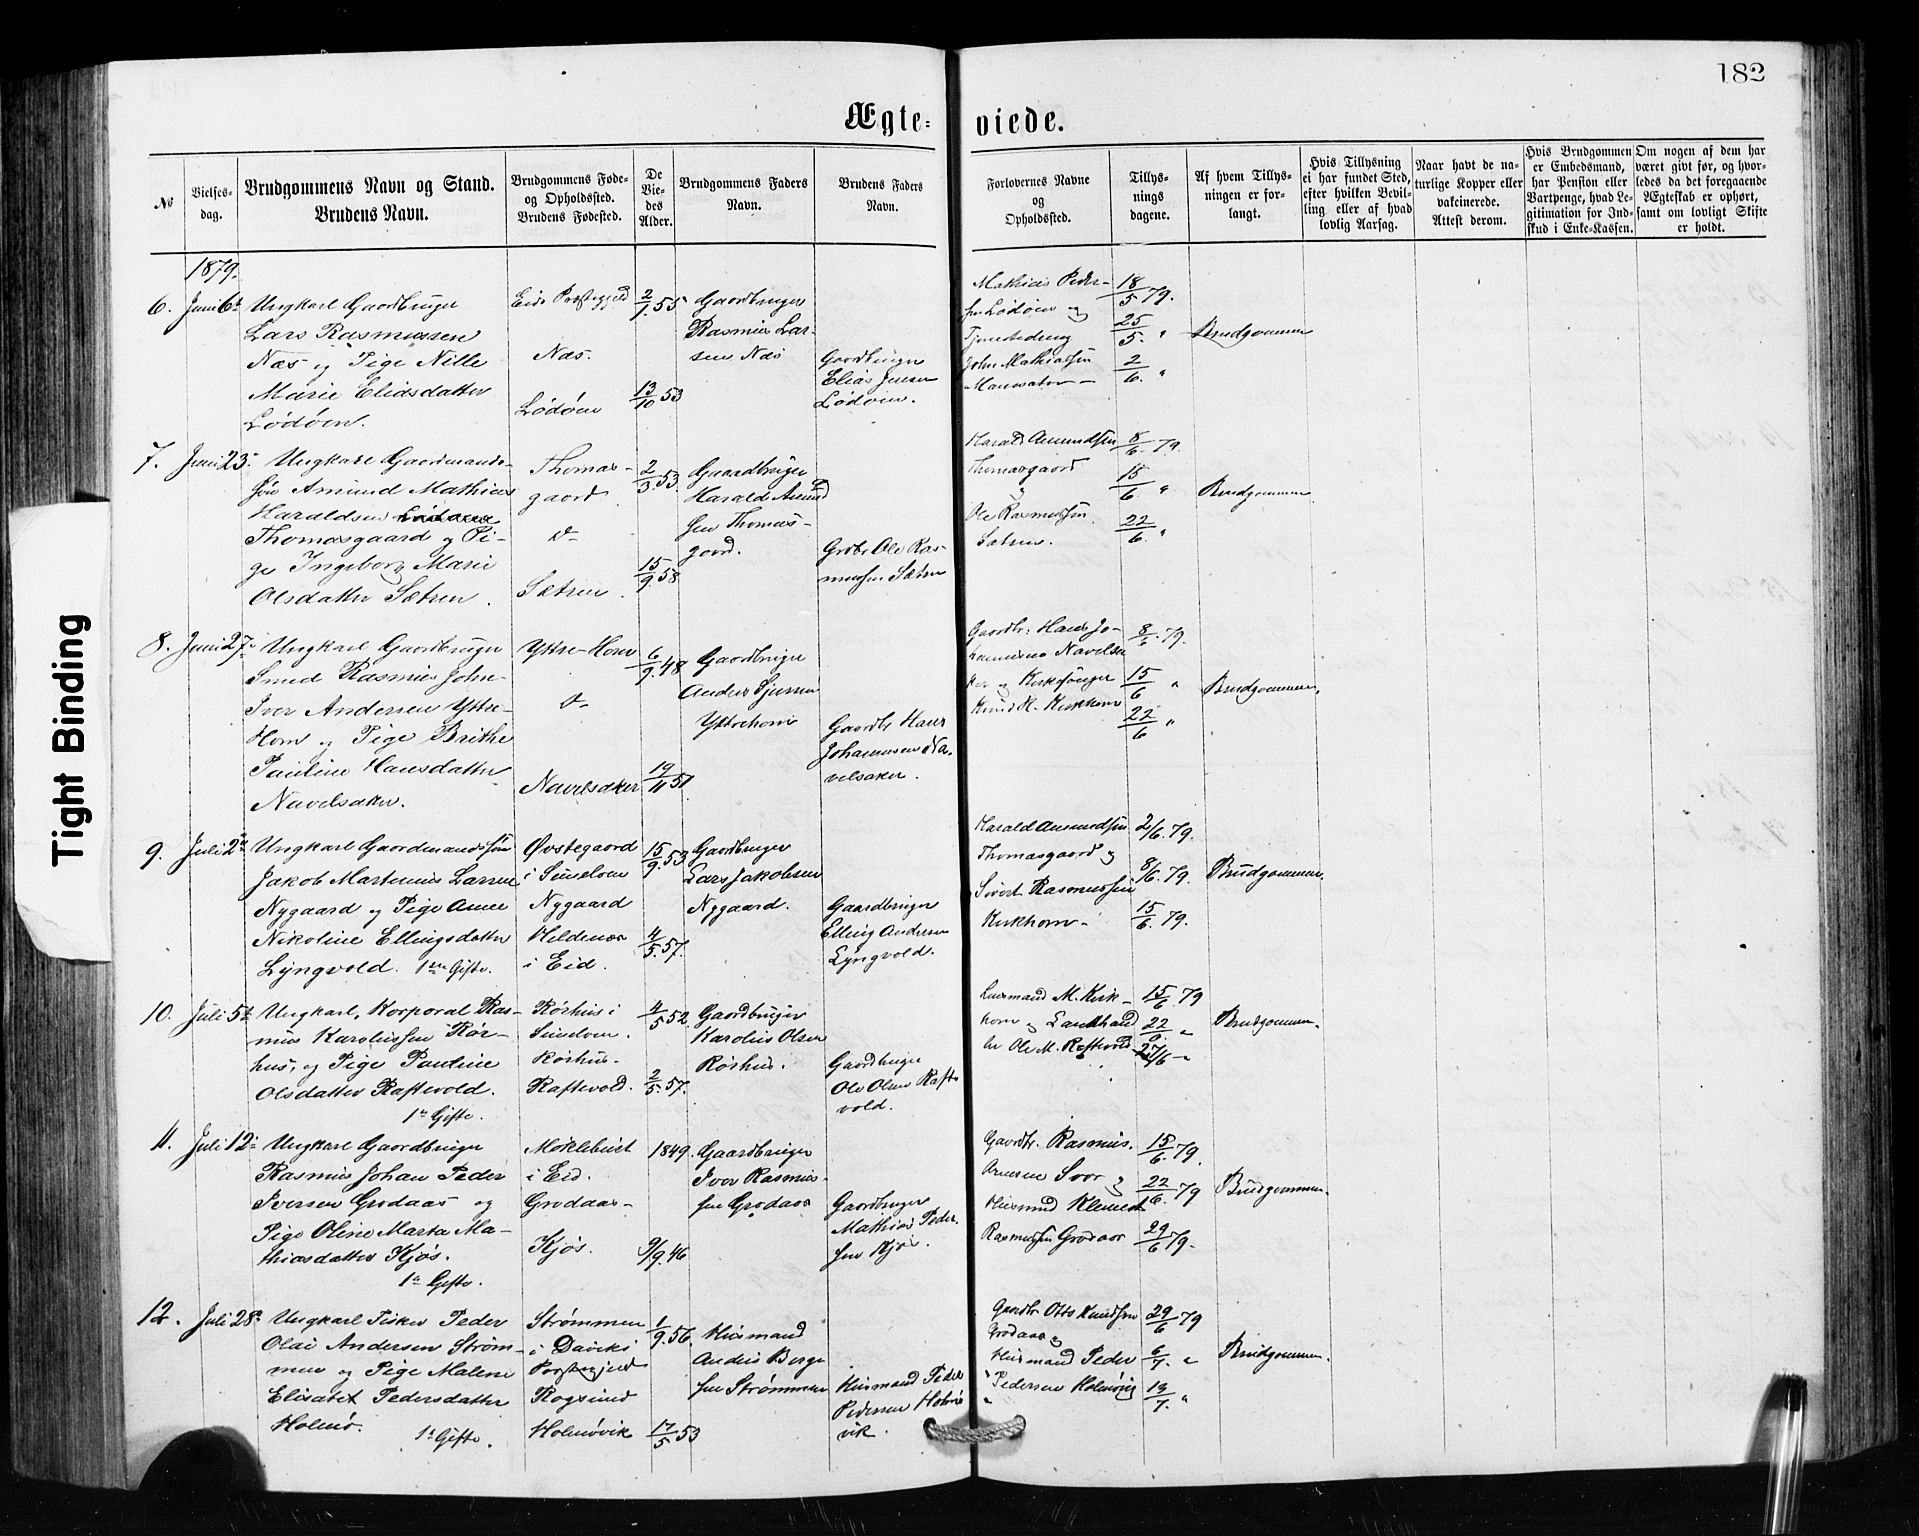 182
Ægte-
viede.
No
Vielses-
dag.
Brudgommens Navn og Stand.
Brudens Navn.
Brudgommens Føde-
og Opholdssted.
Brudens Fødested.
De
Vie-
des
Alder.
Brudgommens Faders
Navn.
Brudens Faders
Navn.
Forlovernes Navne
og
Opholdssted.
Tillys-
nings
dagene.
Af hvem Tillys-
ningen er for-
langt.
Hvis Tillysning
ei har fundet Sted,
efter hvilken Bevil-
ling eller af hvad
lovlig Aarsag.
Naar havt de na-
turlige Kopper eller
vakcinerede.
Attest derom.
Hvis Brudgommen
er Embedsmand,
har Pension eller
Vartpenge, hvad Le-
gitimation for Ind-
skud i Enke-Kassen.
Om nogen af dem har
været givt før, og hvor-
ledes da det foregaaende
Ægteskab er ophørt,
samt om lovligt Skifte
er holdt.
1879.
6.
Juni 6te
Ungkarl Gaardbruger
Lars Rasmussen
Næs og Pige Nille
Marie Eliasdatter
Lødøen.
Eids Præstegjeld
Næs.
Lødøen
2/1. 55
13/10 53
Gaardbruger
Rasmus Lar-
sen Næs
Gaardbruger
Elias Jensen
Lødøen.
Mathias Peder-
sen Lødøen og
John Mathiassen
18/5 79.
25/5. "
2/6. "
Brudgommen
7.
Juni 23.
Ungkarl Gaardmands-
søn Amund Mathias
Haraldsen
Thomasgaard og Pi-
ge Ingeborg Marie
Olsdatter Sætren.
Thomas-
gaard
do
Sætren.
2/3. 53.
15/9. 58
Gaardbruger
Harald Amund
sen Thomas-
gaard.
Grbr Ole Ras-
mussen Sætren
Harald Amundsen
Thomasgaard
og
Ole Rasmussen
Sætren.
8/6. 79.
15/6 "
22/6. "
Brudgommen
8.
Juni 27.
Ungkarl Gaardbruger
Smed Rasmus John
Iver Andersen Yttre-
Horn og Pige Brithe
Pauline Hansdatter
Navelsaker.
Yttre-Horn
do
Navelsaker
6/9. 48
19/11 51
Gaardbruger
Anders Sjursen
Yttrehorn
Gaardbr Hans
Johannesen Na-
velsaker.
Gaardbr: Hans Jo-
hannesen Navelsa-
ker og Kirkesanger
Knud H. Kirkhorn
8/6. 79.
15/6 "
22/6 "
Brudgommen.
9.
Juli 2den
Ungkarl Gaardmandssøn
Jakob Martinus Larsen
Nygaard og Pige Anne
Nikoline Ellingsdatter
Lyngvold. 1ste Gifte.
Øvstegaard
i Indselven
Nygaard
Heldenæs
i Eid.
15/9. 53
4/5. 57.
Gaardbruger
Lars Jakobsen
Nygaard.
Gaardbruger
Elling Andersen
Lyngvold.
Harald Amundsen
Thomasgaard og
Sivert Rasmussen
Kirkhorn-
2/6. 79.
8/6. 79.
15/6. 79.
Brudgommen.
10.
Juli 5te
Ungkarl, Korporal Ras-
mus Karolussen Rør-
hus, og Pige Pauline
Olsdatter Raftevold.
1ste Gifte.
Rørhus i
Indselven
Rørhus.
Raftevold.
4/5 52.
2/5. 57.
Gaardbruger
Karolus Olsen
Rørhus.
Gaardbruger
Ole Olsen Rafte
vold.
Lensmand M. Kirk-
horn og Landhand
ler Ole M. Raftevold
15/6. 79
22/6. "
27/6 "
Brudgommen.
11.
Juli 12te
Ungkarl Gaardbruger
Rasmus Johan Peder
Iversen Grodaas og
Pige Oline Marta Ma-
thiasdatter Kjøs.
1ste Gifte.
Møklebust
i Eid.
Grodaas-
Kjøs.
1849.
9/9. 46
Gaardbruger
Iver Rasmus-
sen Grodaas
Gaardbruger
Mathias Peder-
sen Kjøs.
Gaardbr. Rasmus
Arnesen Svor og
Husmand Klemet
Rasmussen Grodaas
15/6. 79.
22/6. 79
29/6 79.
Brudgommen.
12.
Juli 28de
Ungkarl Fisker Peder
Olai Andersen Strøm-
men og Pige Malene
Elisabet Pedersdatter
Holmø.
1ste Gifte.
Strømmen
i Daviks
Præstegjeld
Rogsund
Holmøvik
1/9. 56.
17/5 53
Husmand
Anders Berge
sen Strømmen
Husmand Peder
Pedersen Holmø
vik.
Gaardbr Otto Knudsen
Grodaas og
Husmand Peder
Pedersen Holmøvig
29/6 79
6/7. "
13/7. "
Brudgommen.
Tight Binding